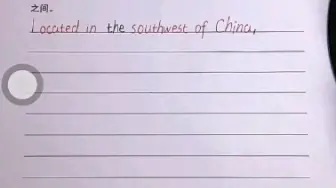 之间。
Located in the southwest of China,